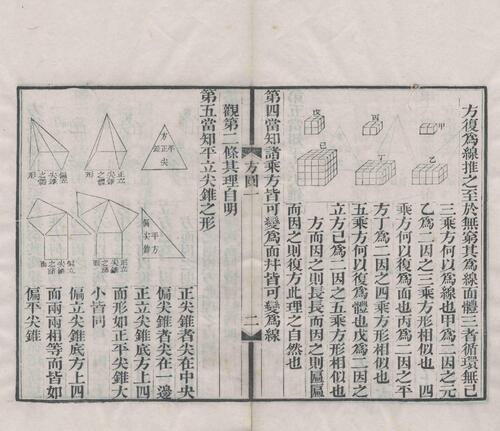 方復爲線推之至於無窮其爲線面體三者循環無已
三乘方何以爲線也甲爲二因之元
乙爲二因之三乘方形相似也 四
乘方何以復爲面也丙爲二因之平
方丁爲二因之四乘方形相似也
五乘方何以復爲體也戊爲二因之
立方己爲二因之五乘方形相似也
方而因之則長長而因之則匾匾
而因之則復方此理之自然也
甲
乙
丙
丁
戊
己
第四當知諸乘方皆可變爲面幷皆可變爲線
方圓一
二
觀第二條其理自明
第五當知平立尖錐之形
正尖錐者尖在中央
偏尖錐者尖在一邊
正立尖錐底方上四
面形如正平尖錐大
小皆同
偏立尖錐底方上四
面兩兩相等而皆如
偏平尖錐
正立
尖錐
之形
偏立
尖錐
之形